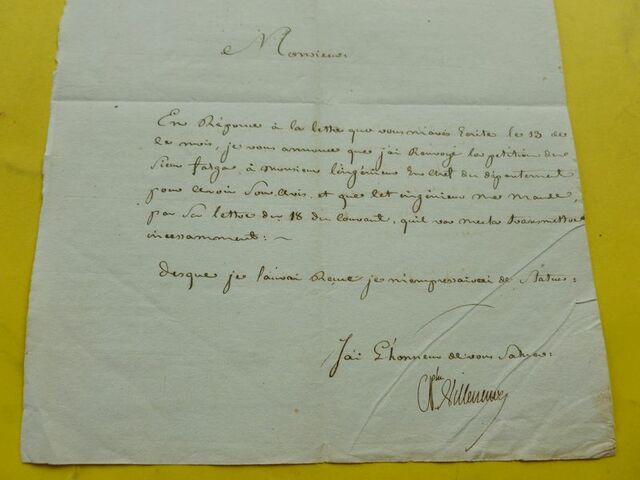 Monsieur.
En Réponse à la lettre que vous m'avés Ecrite le 13 de
ce mois, je vous annonce que j'ai Renvoyé la pétition du
Sieur fargas, à monsieur l'ingénieur En chef du département
pour avoir Son avis. et que cet ingénieur me mande,
par Sa lettre du 18 du courant, qu'il va me la transmettre
incessamment: ~
Desque je l'aurai Reçue je m'empresserai de Statuer:
J'ai L'honneur de vous Saluer:
Villeneuve